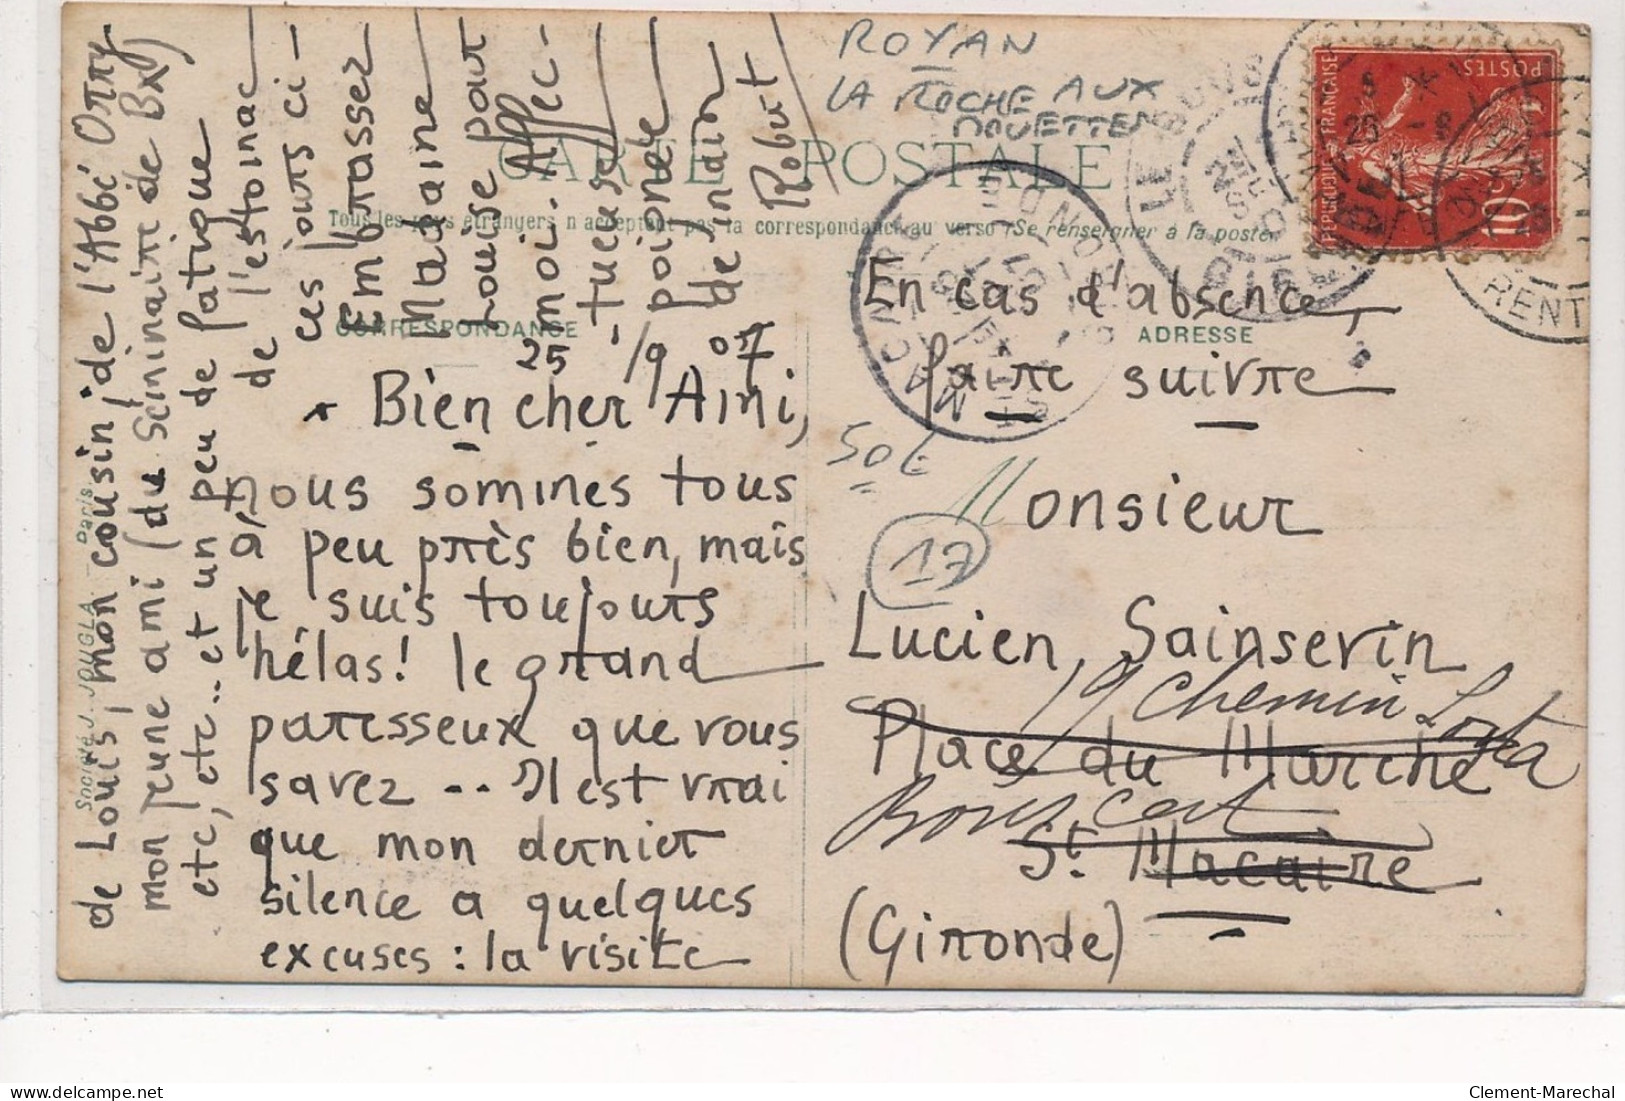 ROYAN
LA ROCHE AUX
MOUETTES
CARTE POSTALE
Tous les pays étrangers n'acceptent pas la correspondance au verso (Se renseigner à la poste)
CORRESPONDANCE
ADRESSE
25/9 07
Bien cher Ami,
nous sommes tous
à peu près bien, mais
je suis toujours
hélas! le grand
paresseux que vous
savez .. Il est vrai
que mon dernier
silence a quelques
excuses : la visite
de Louis, mon cousin, de l'Abbé Orry
mon jeune ami (du Séminaire de Bx)
etc, etc.. et un peu de fatigue
de l'estomac
ces jours ci-
Embrassez
Madame
Louise pour
moi. Affec-
tueuse
poignée
de main
Robert
En cas d'absence,
faire suivre
50c
17
Monsieur
Lucien Sainsevin
19 Chemin
Place du Marché
Bouscat
St Macaire
(Gironde)
Société JOUGLA Paris
REPUBLIQUE FRANÇAISE
POSTES
10c
LE BOUSCAT
GIRONDE
ST MACAIRE
GIRONDE
Clement-Marechal